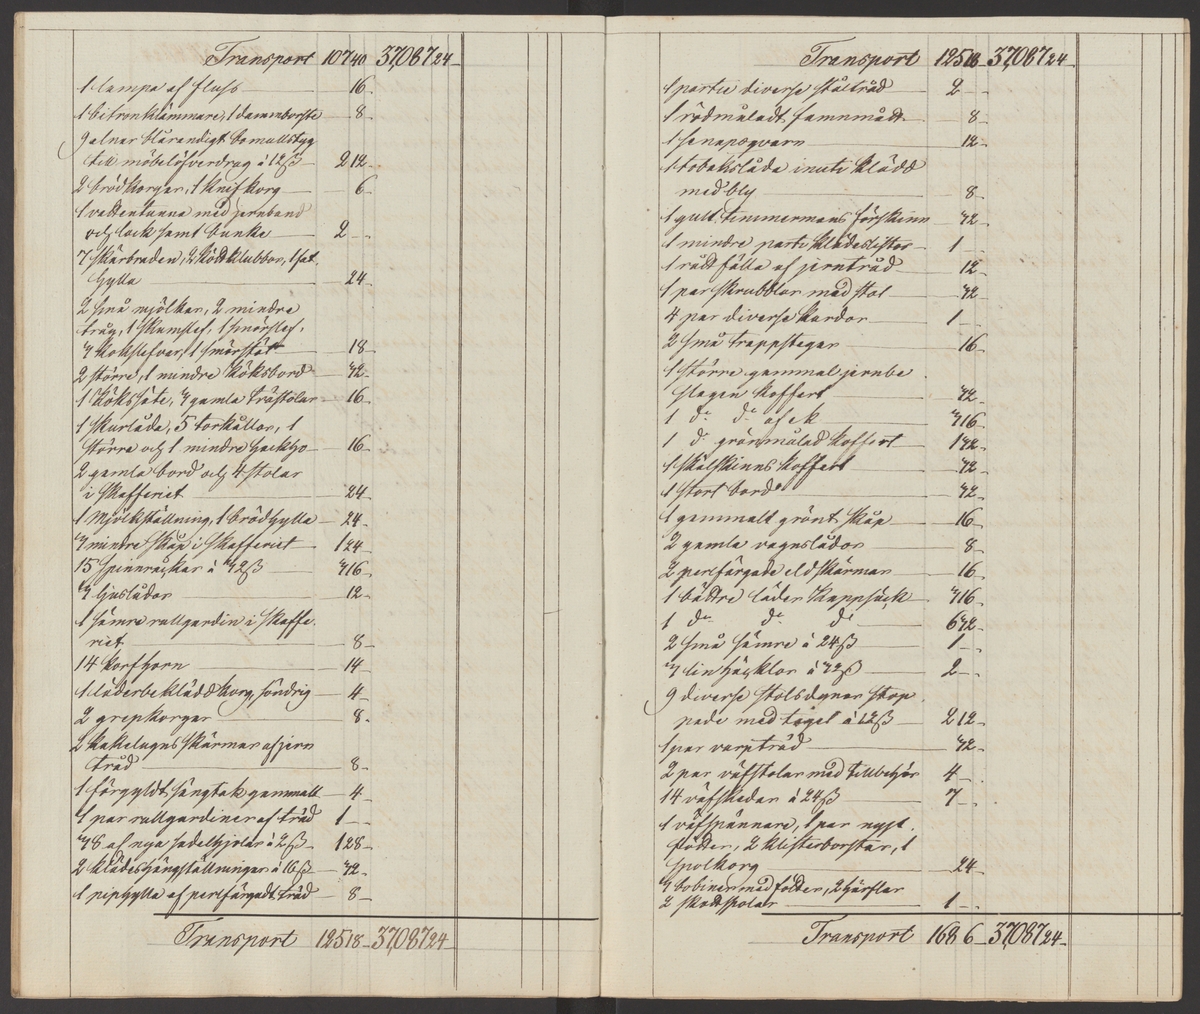 Transport 107 40 37,087 24
1 lampa af fluss 16
1 citronklämmare, 1 dammborste 8
9 alnar blårandigt bomullstyg
till möbelöfverdrag à 12ß 2 12
2 brödkorgar, 1 knifkorg 6
1 vattentunna med jernband
och lock samt bunke 2
7 skärbräden, 2 köttklubbor, 1 fat
hylla 24
2 små mjölkar, 2 mindre
tråg, 1 skumslef, 1 smörslef,
3 kokslefvar, 1 smörstöt 18
2 större, 1 mindre köksbord 32
1 kökssäte, 3 gamla trästolar 16
1 skurlåda, 5 torkållor, 1
större och 1 mindre hackho 16
2 gamla bord och 4 stolar
i skafferiet 24
1 mjölkställning, 1 brödhylla 24
3 mindre skåp i skafferiet 1 24
15 spinnrockar à 32ß 3 16
3 ljuslådor 12
1 sämre rullgardin i skaffe
riet 8
14 korfhorn 14
1 läderbeklädd korg, söndrig 4
2 grepkorgar 8
2 kakelugnsskärmar af jern
tråd 8
1 förgyldt sängtak gammalt 4
1 par rullgardiner af tråd 1
38 af nya hjular à 2ß 1 28
2 klädeshängställningar à 16ß 32
1 piphylla af perlfärgadt träd 8
Transport 125 18 37,087 24
Transport 125 18 37,087 24
1 partie diverse ståltråd 2
1 rödmåladt famnmått 8
1 senapsqvarn 12
1 tobakslåda inuti klädd
med bly 8
1 gult timmermans förskinn 32
1 mindre parti klädeslistor 1
1 råttfälla af jerntråd 12
1 par skrubblor med stol 32
4 par diverse kardor 1
2 små trappstegar 16
1 större gammal jernbe
slagen koffert 32
1 do do af ek 3 16
1 do grönmålad koffert 1 32
1 skälskinns koffert 32
1 stort bord 32
1 gammalt grönt skåp 16
2 gamla vagnslådor 8
2 perlfärgade eldskärmar 16
1 bättre läder kappsäck 3 16
1 do do do 6 32
2 små sämre à 24ß 1
3 linhäcklor à 32ß 2
9 diverse stolsdynor stop
pade med tagel à 12ß 2 12
1 par varpträd 32
2 par väfstolar med tillbehör 4
14 väfskedar à 24ß 7
1 väfspännare, 1 par nyst
fötter, 2 klisterborstar, 1
spolkorg 24
3 bobiner med fötter, 2 härflar
2 skottspolar 1
Transport 168 6 37,087 24